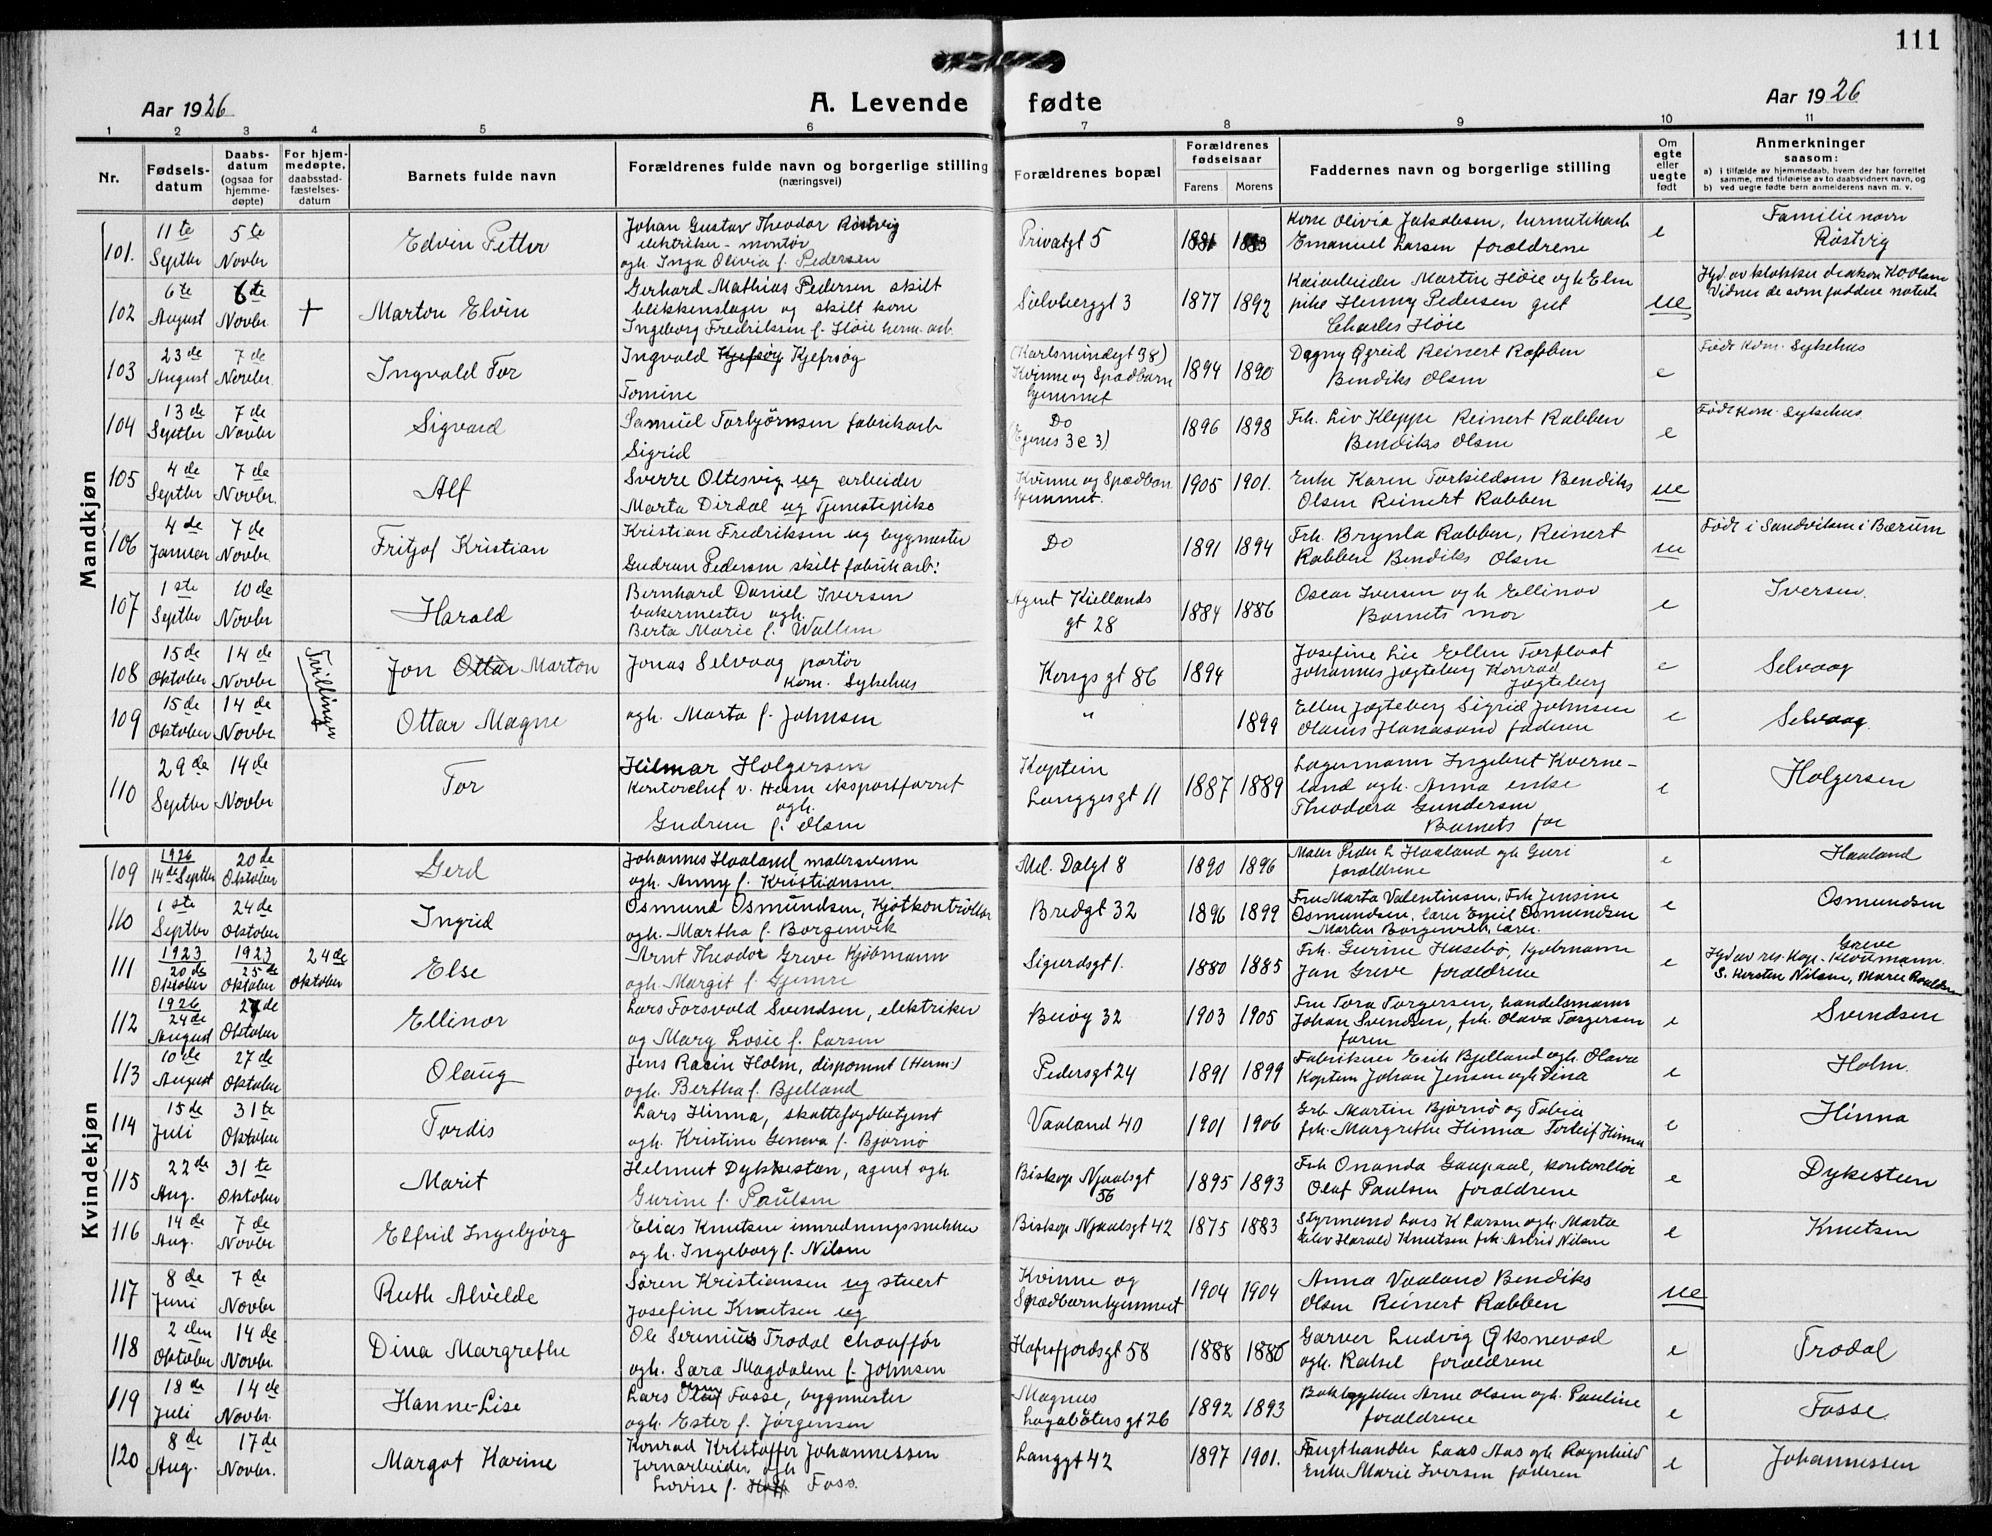 111
Aar 1926
A. Levende fødte
Aar 1926
1 2 3 4 5 6 7 8 9 10 11
Nr.
Fødsels-
datum
Daabs-
datum
(ogsaa for
hjemme-
døpte)
For hjem-
medøpte,
daabsstad-
fæstelses-
datum
Barnets fulde navn
Forældrenes fulde navn og borgerlige stilling
(næringsvei)
Forældrenes bopæl
Forældrenes
fødselsaar
Farens Morens
Faddernes navn og borgerlige stilling
Om
egte
eller
uegte
født
Anmerkninger
saasom:
a) i tilfælde av hjemmedaab, hvem der har forrettet
samme, med tilføielse av to daabsvidners navn, og
b) ved uegte fødte børn anmelderens navn m. v.
Mandkjøn
101. 11te Septbr 5te Novbr Edvin Petter
Johan Gustav Theodor Røstvig
elektriker - montør
ogh. Inga Olivia f. Pedersen
Privatgt 5 1881 1883
Kone Olivia Jakobsen, hermetikarb
Emanuel Larsen forældrene
e
Familienavn
Røstvig
102 6te August 6te Novbr. + Marton Elvin
Gerhard Mathias Pedersen skilt
blikkenslager og skilt kone
Ingeborg Fredriksen f. Høie herm. arb.
Sølvberggt 3 1877 1892
Kaiarbeider Martin Høie og h Elen
pike Henny Pedersen gut
Charles Høie
ue
Hjd. av klokker diakon
Vidner de som faddere noterte
103 23de August 7de Novbr. Ingvald Tor
Ingvald Kjefsøy
Tomine
(Karlsmindegt 38)
Kvinne og Spædbarn
hjemmet
1894 1890
Dagny Ogreid Reinert Rabben
Bendiks Olsen
e
Født Kom. Sykehus
104 13de Septbr 7de Novbr. Sigvard
Samuel Torbjørnsen fabrikarb
Sigrid
Do
(Egenes 3 e 3)
1896 1898
Frk. Liv Kleppe Reinert Rabben
Bendiks Olsen
e
Født Kom. Sykehus
105 4de Septbr 7de Novbr. Alf
Sverre Oltesvig ug arbeider
Marta Dirdal ug Tjenestepike
Kvinne og Spædbarn
hjemmet.
1905 1901.
Enke Karen Torkildsen Bendiks
Olsen Reinert Rabben
ue
106 4de Januar 7de Novbr. Fritjof Kristian
Kristian Fredriksen ug bygmester
Gudrun Pedersen skilt fabrikarb:
Do 1891 1894
Frk. Brynla Rabben, Reinert
Rabben Bendiks Olsen
ue
Født i Sandviken i Bærum
107 1ste Septbr 10de Novbr. Harald
Bernhard Daniel Iversen
bakermester ogh.
Berta Marie f. Wallem
Agent Kiellands
gt 28
1884 1886
Oscar Iversen og h Ellinor
Barnets mor
e
Iversen.
108 15de Oktober 14de Novbr Tvillinger Jon Ottar Marton
Jonas Selvaag portør
Kom. Sykehus
Kongsgt 86 1894
Josefine Lie Ellen Torflaat
Johannes Jøgteberg Konrad
Jøgteberg
e
Selvaag
109 15de Oktober 14de Novbr. Ottar Magne
ogh. Marta f. Johnsen
" 1899
Ellen Jøgteberg Sigrid Johnsen
Olams Hanasand faderen
e
Selvaag
110 29de Septbr 14de Novbr Tor
Hilmar Holgersen
Kontorchef v. Herm eksportforret
ogh.
Gudrun f. Olsen
Kaptein
Langgesgt 11
1887 1889
Lagermann Ingebret Kverne-
land ogh. Anna enke
Theodora Gundersen
Barnets far
e
Holgersen
Kvindekjøn
109 1926 14de Septbr 20de Oktober Gerd
Johannes Haaland malersvenn
ogh. Anny f. Kristiansen
Mel. Dalgt 8 1890 1896
Maler Peder L Haaland ogh Guri
forældrene
e
Haaland
110 1ste Septbr 24de Oktober Ingrid
Osmund Osmundsen, Kjøtkontrollør
ogh. Martha f. Borgenvik
Bredgt 32 1896 1899
Fru Marta Valentinsen, Frk Jensine
Osmundsen, lærer Emil Osmundsen
Martin Borgenvik, lærer.
e
Osmundsen
111 1923 20de Oktober 1923 25de Oktober 24de Oktober Else
Arnt Theodor Greve Kjøbmann
ogh. Margit f. Gjemre
Sigurdsgt 1. 1880 1885
Frk. Gurine Husebø, Kjøbmann
Jan Greve forældrene
e
Greve
Hjd av res. Kap.
S. Kersten Nilsen, Marie
112 1926 24de August 27de Oktober Ellinor
Lars Torsvald Svendsen, elektriker
og Mary Losie f. Larsen
Beiøy 32 1903 1905
Fru Tora Torgersen, handelsmann
Johan Svendsen, frk. Olava Torgersen
faren
e
Svendsen
113 10de August 27de Oktober Olaug
Jens Racin Holm, disponent (Herm:)
ogh. Bertha f. Bjelland
Pedersgt 24 1891 1899
Fabrikeier Erik Bjelland ogh. Olava
Kaptein Johan Jensen ogh Dina
e
Holm.
114 15de Juli 31te Oktober Tordis
Lars Hinna, skattefogdbetjent
ogh. Kristine Geneva f. Bjørnø
Vaaland 40 1901 1906
Grb. Martin Bjørnø og Tobia
frk. Margrethe Hinna Torleif Hinna
e
Hinna
115 22de Aug. 31te Oktober Marit
Helmut Dykesteen, agent ogh
Gurine f. Paulsen
Biskop Njaalsgt
56
1895 1893
Frk Onanda Gaupaal, kontorllør
Olaf Paulsen forældrene
e
Dykesteen
116 14de Aug. 7de Novbr Elfrid Ingebjørg
Elias Knutsen innredningssnekker
og h. Ingeborg f. Nilsen
Biskop Njaalsgt 42 1875 1883
Styrmand Lars K Larsen ogh. Marta
Elev Harald Knutsen frk. Astrid Nilsen
e
Knutsen
117 8de Juni 7de Novbr Ruth Alvilde
Søren Kristiansen ug stuert
Josefine Knutsen ug
Kvinne og
Spædbarnhjemmet
1904 1904
Anna Vaaland Bendiks
Olsen Reinert Rabben
ue
118 2den Oktober 14de Novbr. Dina Margrethe
Ole Serinius Trodal chauffør
ogh. Sara Magdalene f. Johnsen
Hafrsfjordsgt 58 1888 1886
Garver Ludvig Oksnevad
ogh. Rakel forældrene
e
Trodal
119 18de Juli 14de Novbr. Hanne-Lise
Lars Olaf Fosse, bygmester
ogh. Ester f. Jørgensen
Magnus
Lagabøtersgt 26
1892 1893
Arne Olsen ogh. Pauline
forældrene
e
Fosse.
120 8de Aug. 17de Novbr. Margot Harine
Konrad Kristoffer Johannessen
Jernarbeider ogh
Lovise f. Foss.
Langgt 42 1897 1901.
Fragthandler Laas Aas ogh Ragnhild
Enke Marie Iversen faderen
e
Johannessen